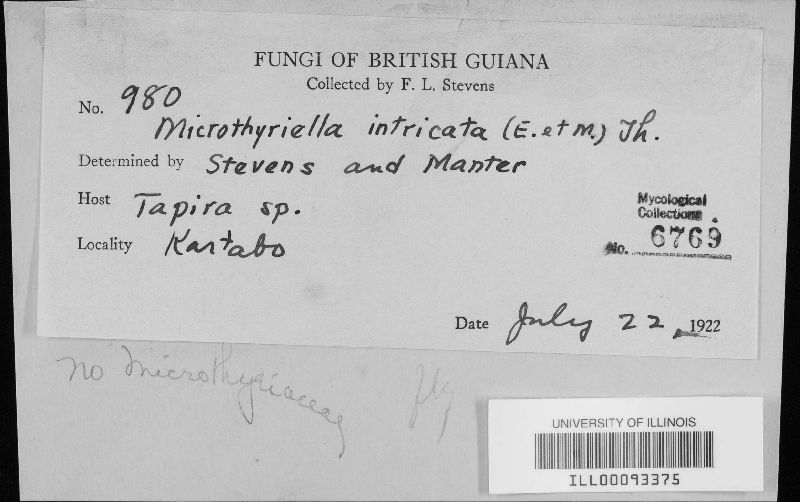 FUNGI OF BRITISH GUIANA
Collected by F. L. Stevens
No. 980
Microthyriella intricata (E. et M.) Th.
Determined by Stevens and Manter
Host Tapira sp.
Locality Kartabo
Mycological
Collections
No. 6769
Date July 22, 1922
no Microthyriaceae
UNIVERSITY OF ILLINOIS
ILL00093375